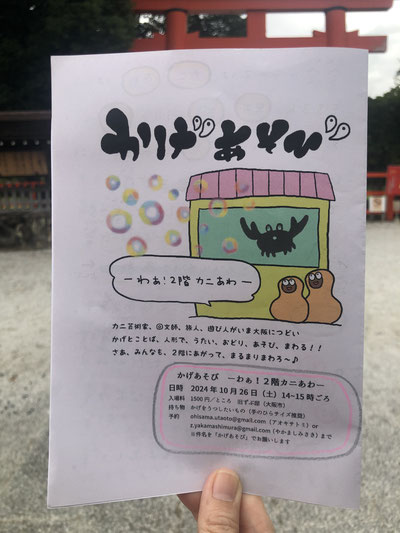 かげあそび
ーわぁ!2階 カニあわー
カニ芸術家、回文師、旅人、遊び人がいま大阪につどい
かげとことば、人形で、うたい、おどり、あそび、まわる!!
さあ、みんなも、2階にあがって、まるまりまわろ〜♪
かげあそび ーわぁ!2階カニあわー
日時 2024年10月26日(土)14~15時ごろ
入場料 1500円/ところ 旧ずぶ邸(大阪市)
持ち物 かげをうつしたいもの(手のひらサイズ推奨)
予約 ohisama.utaoto@gmail.com(アオキサトミ)or
z.yakamashimura@gmail.com(やかましみさき)まで
※件名を「かげあそび」でお願いします